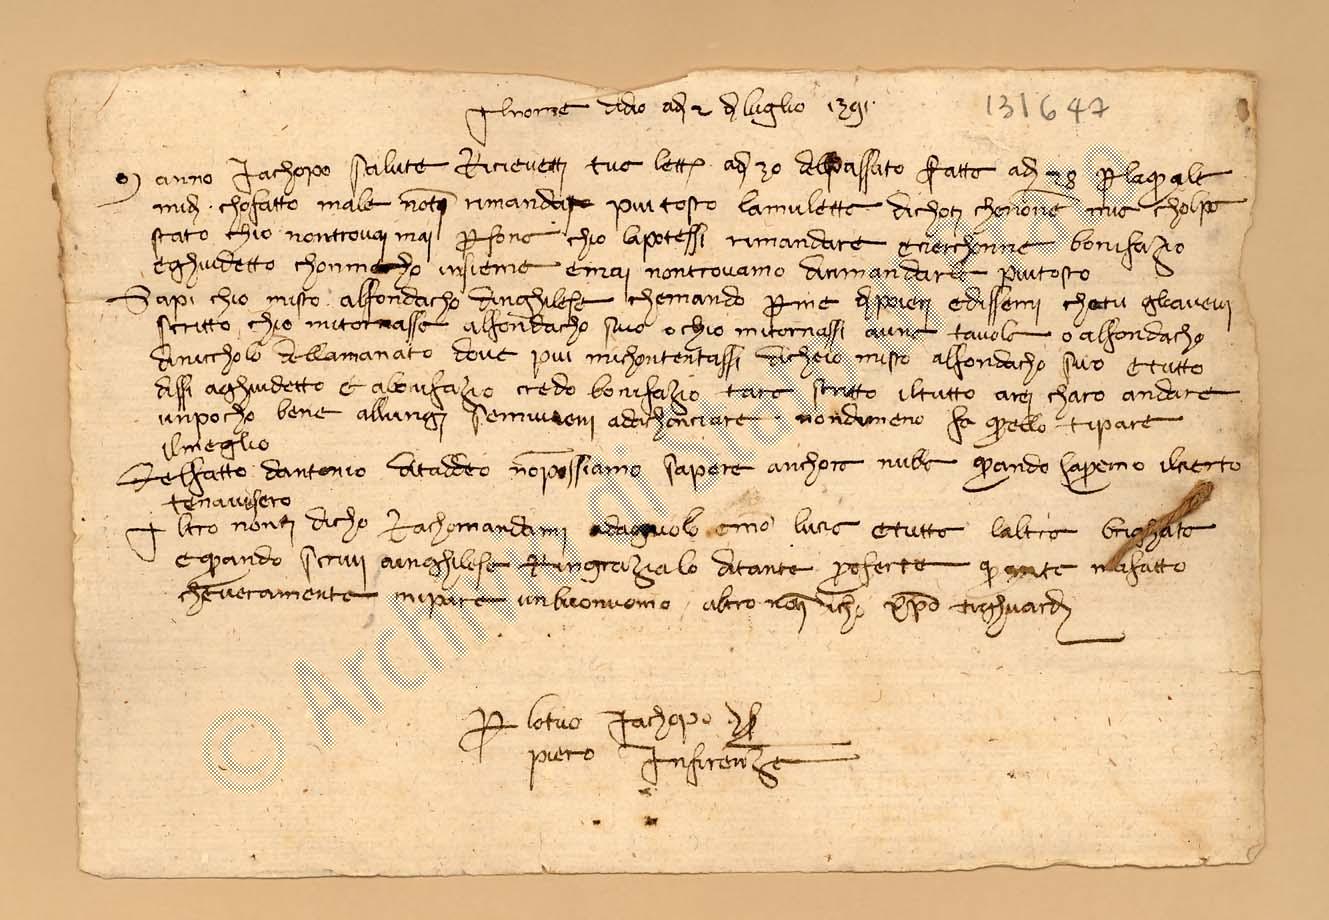 Al nome di dio adì 2 di luglio 1391
131647
Nanno Jachopo salute Ricievetti tue lettere adì 30 del passato fatte adì 28 per laquale
midi chofatto male noti rimandare piutosto lamuletta dichoti chenone mie cholpa
stato chio nontrovai mai persone chio lapotessi rimandare cierchonne bonifazio
eghuidetto chonmecho insieme emai nontrovamo darimandare piutosto
Sapi chio misto alfondacho dinghilese chemando perme epoi edissemi chetu gliavevi
scritto chio mitornasse alfondacho suo ochio mitornassi aune tavole o alfondacho
diniccholo dellamanato dove piu michontentassi dicheio misto alfondacho suo etutto
dissi aghuidetto e abonifazio credo bonifazio tare scritto iltutto arei charo andare
unpocho bene allungi senvivevi adachonciare nondimeno fa quello tipare
ilmeglio
Delfatto dantonio ditaddeo nonpossiamo sapere anchora nulla quando sapremo ilcierto
tenaviserò
Altro nonti dicho Rachomandami adagnolo emona lucia etutta laltra brighata
equando scrivi ainghilese Ringrazialo ditante proferte quante mafatto
cheveramente mipare unbuonuomo altro noti dicho Christo tighuardi
Per lotuo Jachopo di ser
piero Infirenze
© Archivio di Stato di Prato